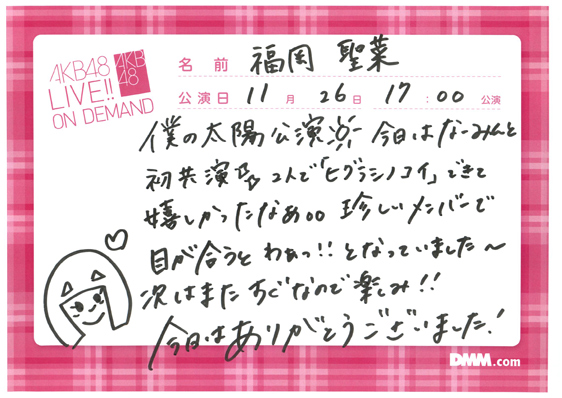 AKB48
LIVE!!
ON DEMAND
AKB
48
名前 福岡 聖菜
公演日 11月 26日 17:00公演
僕の太陽公演 今日はなーみんと
初共演 2人で「ヒグラシノコイ」できて
嬉しかったなあ。。 珍しいメンバーで
目が合うとわぁっ!!となっていました〜
次はまたすぐなので楽しみ!!
今日はありがとうございました!
DMM.com